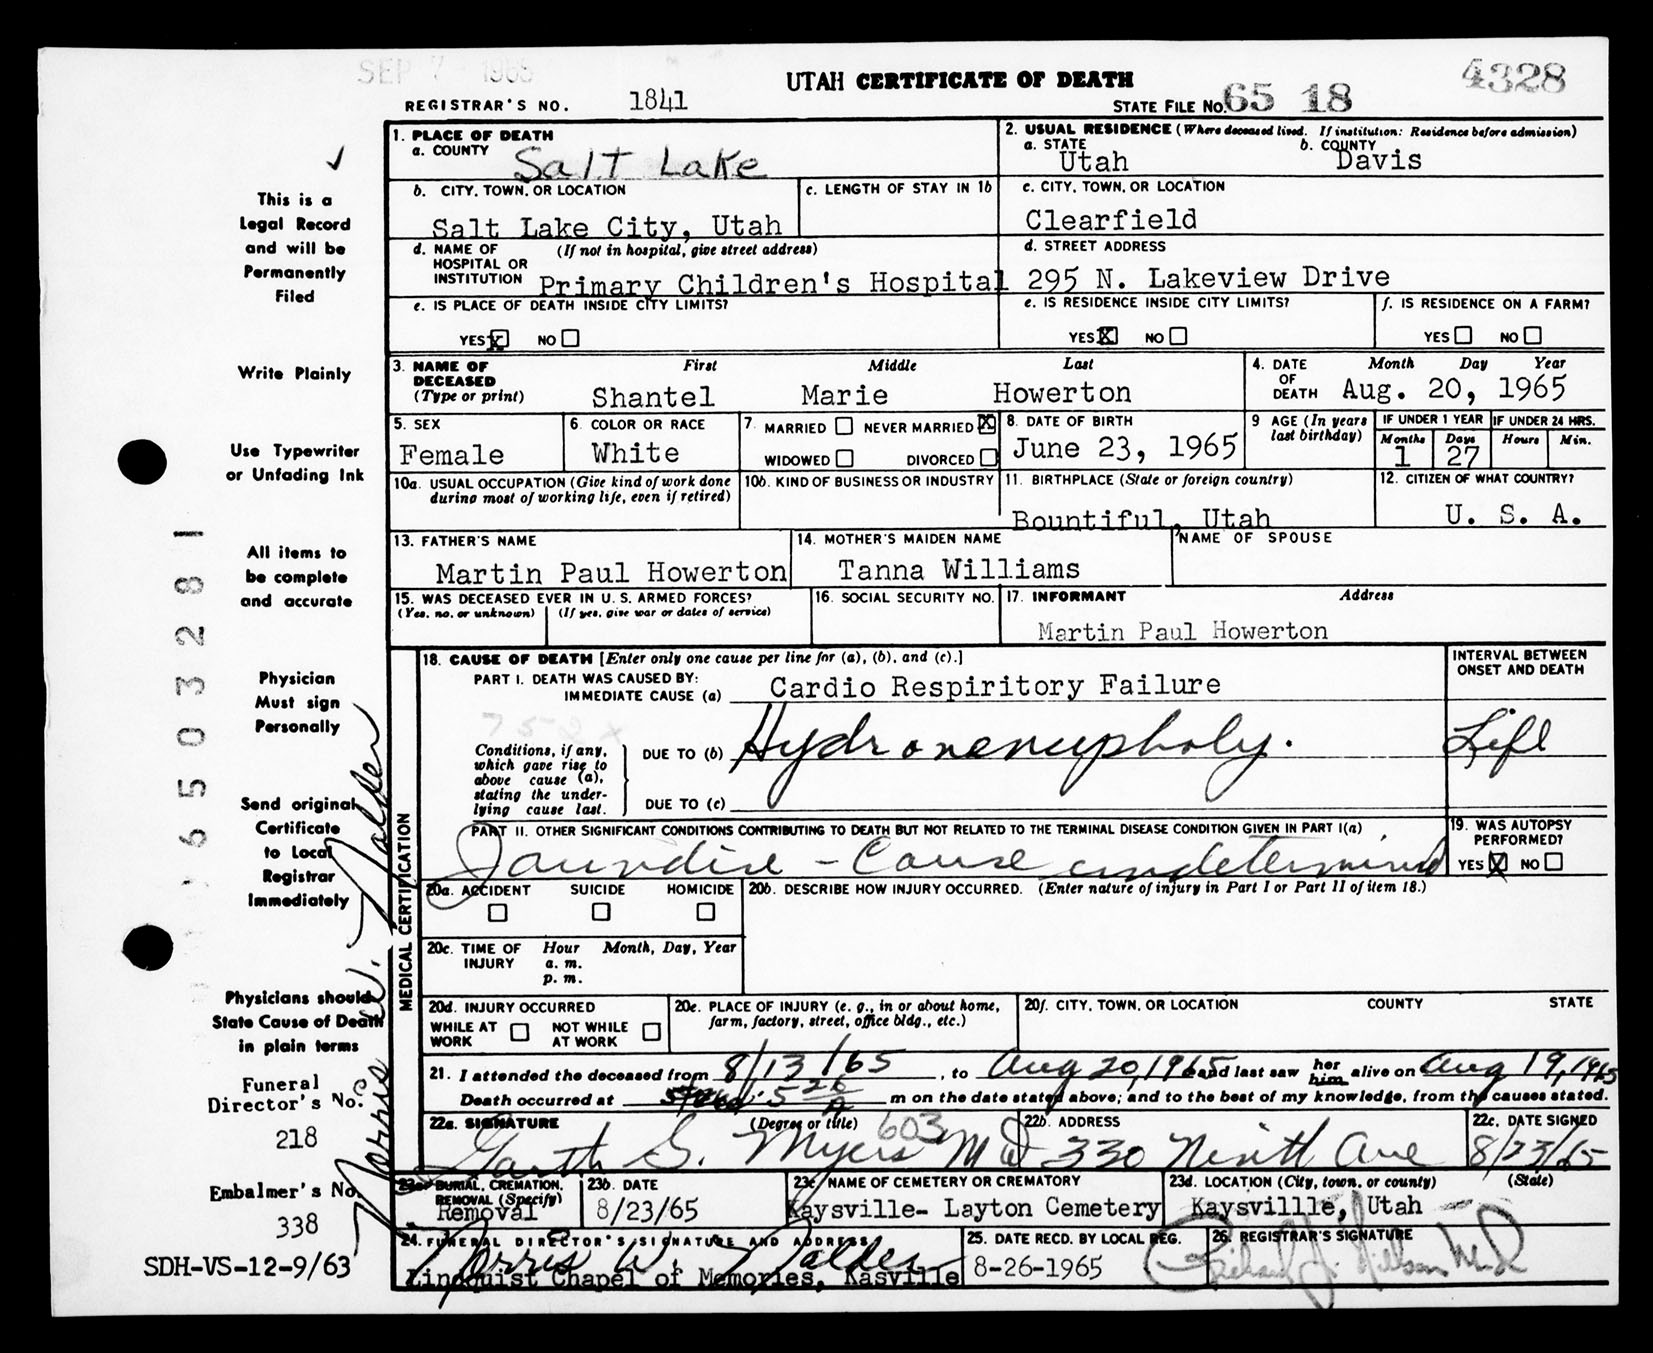 SEP 7 1965
UTAH CERTIFICATE OF DEATH
4328
REGISTRAR'S NO. 1841
STATE FILE No. 65 18
1. PLACE OF DEATH
a. COUNTY Salt Lake
2. USUAL RESIDENCE (Where deceased lived. If institution: Residence before admission)
a. STATE Utah b. COUNTY Davis
b. CITY, TOWN, OR LOCATION Salt Lake City, Utah
c. LENGTH OF STAY IN 1b
c. CITY, TOWN, OR LOCATION Clearfield
d. NAME OF HOSPITAL OR INSTITUTION (If not in hospital, give street address) Primary Children's Hospital
d. STREET ADDRESS 295 N. Lakeview Drive
e. IS PLACE OF DEATH INSIDE CITY LIMITS?
YES X NO
e. IS RESIDENCE INSIDE CITY LIMITS?
YES X NO
f. IS RESIDENCE ON A FARM?
YES NO
3. NAME OF DECEASED (Type or print)
First Middle Last
Shantel Marie Howerton
4. DATE OF DEATH
Month Day Year
Aug. 20, 1965
5. SEX Female
6. COLOR OR RACE White
7. MARRIED NEVER MARRIED X
WIDOWED DIVORCED
8. DATE OF BIRTH June 23, 1965
9 AGE (In years last birthday)
IF UNDER 1 YEAR
Months Days
1 27
IF UNDER 24 HRS.
Hours Min.
10a. USUAL OCCUPATION (Give kind of work done during most of working life, even if retired)
10b. KIND OF BUSINESS OR INDUSTRY
11. BIRTHPLACE (State or foreign country) Bountiful, Utah
12. CITIZEN OF WHAT COUNTRY? U. S. A.
13. FATHER'S NAME Martin Paul Howerton
14. MOTHER'S MAIDEN NAME Tanna Williams
NAME OF SPOUSE
15. WAS DECEASED EVER IN U. S. ARMED FORCES?
(Yes, no, or unknown) (If yes, give war or dates of service)
16. SOCIAL SECURITY NO.
17. INFORMANT Address
Martin Paul Howerton
MEDICAL CERTIFICATION
18. CAUSE OF DEATH [Enter only one cause per line for (a), (b), and (c).]
INTERVAL BETWEEN ONSET AND DEATH
PART I. DEATH WAS CAUSED BY:
IMMEDIATE CAUSE (a) Cardio Respiritory Failure
752X
Conditions, if any, which gave rise to above cause (a), stating the underlying cause last.
DUE TO (b) Hydronenupholy. Life
DUE TO (c)
PART II. OTHER SIGNIFICANT CONDITIONS CONTRIBUTING TO DEATH BUT NOT RELATED TO THE TERMINAL DISEASE CONDITION GIVEN IN PART I(a)
Jaundise - Cause undetermined
19. WAS AUTOPSY PERFORMED?
YES X NO
20a. ACCIDENT SUICIDE HOMICIDE
20b. DESCRIBE HOW INJURY OCCURRED. (Enter nature of injury in Part I or Part II of item 18.)
20c. TIME OF INJURY Hour Month, Day, Year
a. m.
p. m.
20d. INJURY OCCURRED
WHILE AT WORK NOT WHILE AT WORK
20e. PLACE OF INJURY (e. g., in or about home, farm, factory, street, office bldg., etc.)
20f. CITY, TOWN, OR LOCATION COUNTY STATE
21. I attended the deceased from 8/13/65, to Aug 20, 1965 and last saw her him alive on Aug 19, 1965
Death occurred at 5 26 A m on the date stated above; and to the best of my knowledge, from the causes stated.
22a. SIGNATURE (Degree or title) Garth G. Myers MD 603
22b. ADDRESS 330 Ninth Ave
22c. DATE SIGNED 8/23/65
23a. BURIAL, CREMATION, REMOVAL (Specify) Removal
23b. DATE 8/23/65
23c. NAME OF CEMETERY OR CREMATORY Kaysville- Layton Cemetery
23d. LOCATION (City, town, or county) (State) Kaysvillle, Utah
24. FUNERAL DIRECTOR'S SIGNATURE AND ADDRESS
Norris W. Nalder
Lindquist Chapel of Memories, Kasville
25. DATE RECD. BY LOCAL REG. 8-26-1965
26. REGISTRAR'S SIGNATURE
This is a
Legal Record
and will be
Permanently
Filed
Write Plainly
Use Typewriter
or Unfading Ink
All items to
be complete
and accurate
Physician
Must sign
Personally
Send original
Certificate
to Local
Registrar
Immediately
Physicians should
State Cause of Death
in plain terms
Funeral
Director's No.
218
Embalmer's No.
338
SDH-VS-12-9/63
6503281
Norris W. Nalder